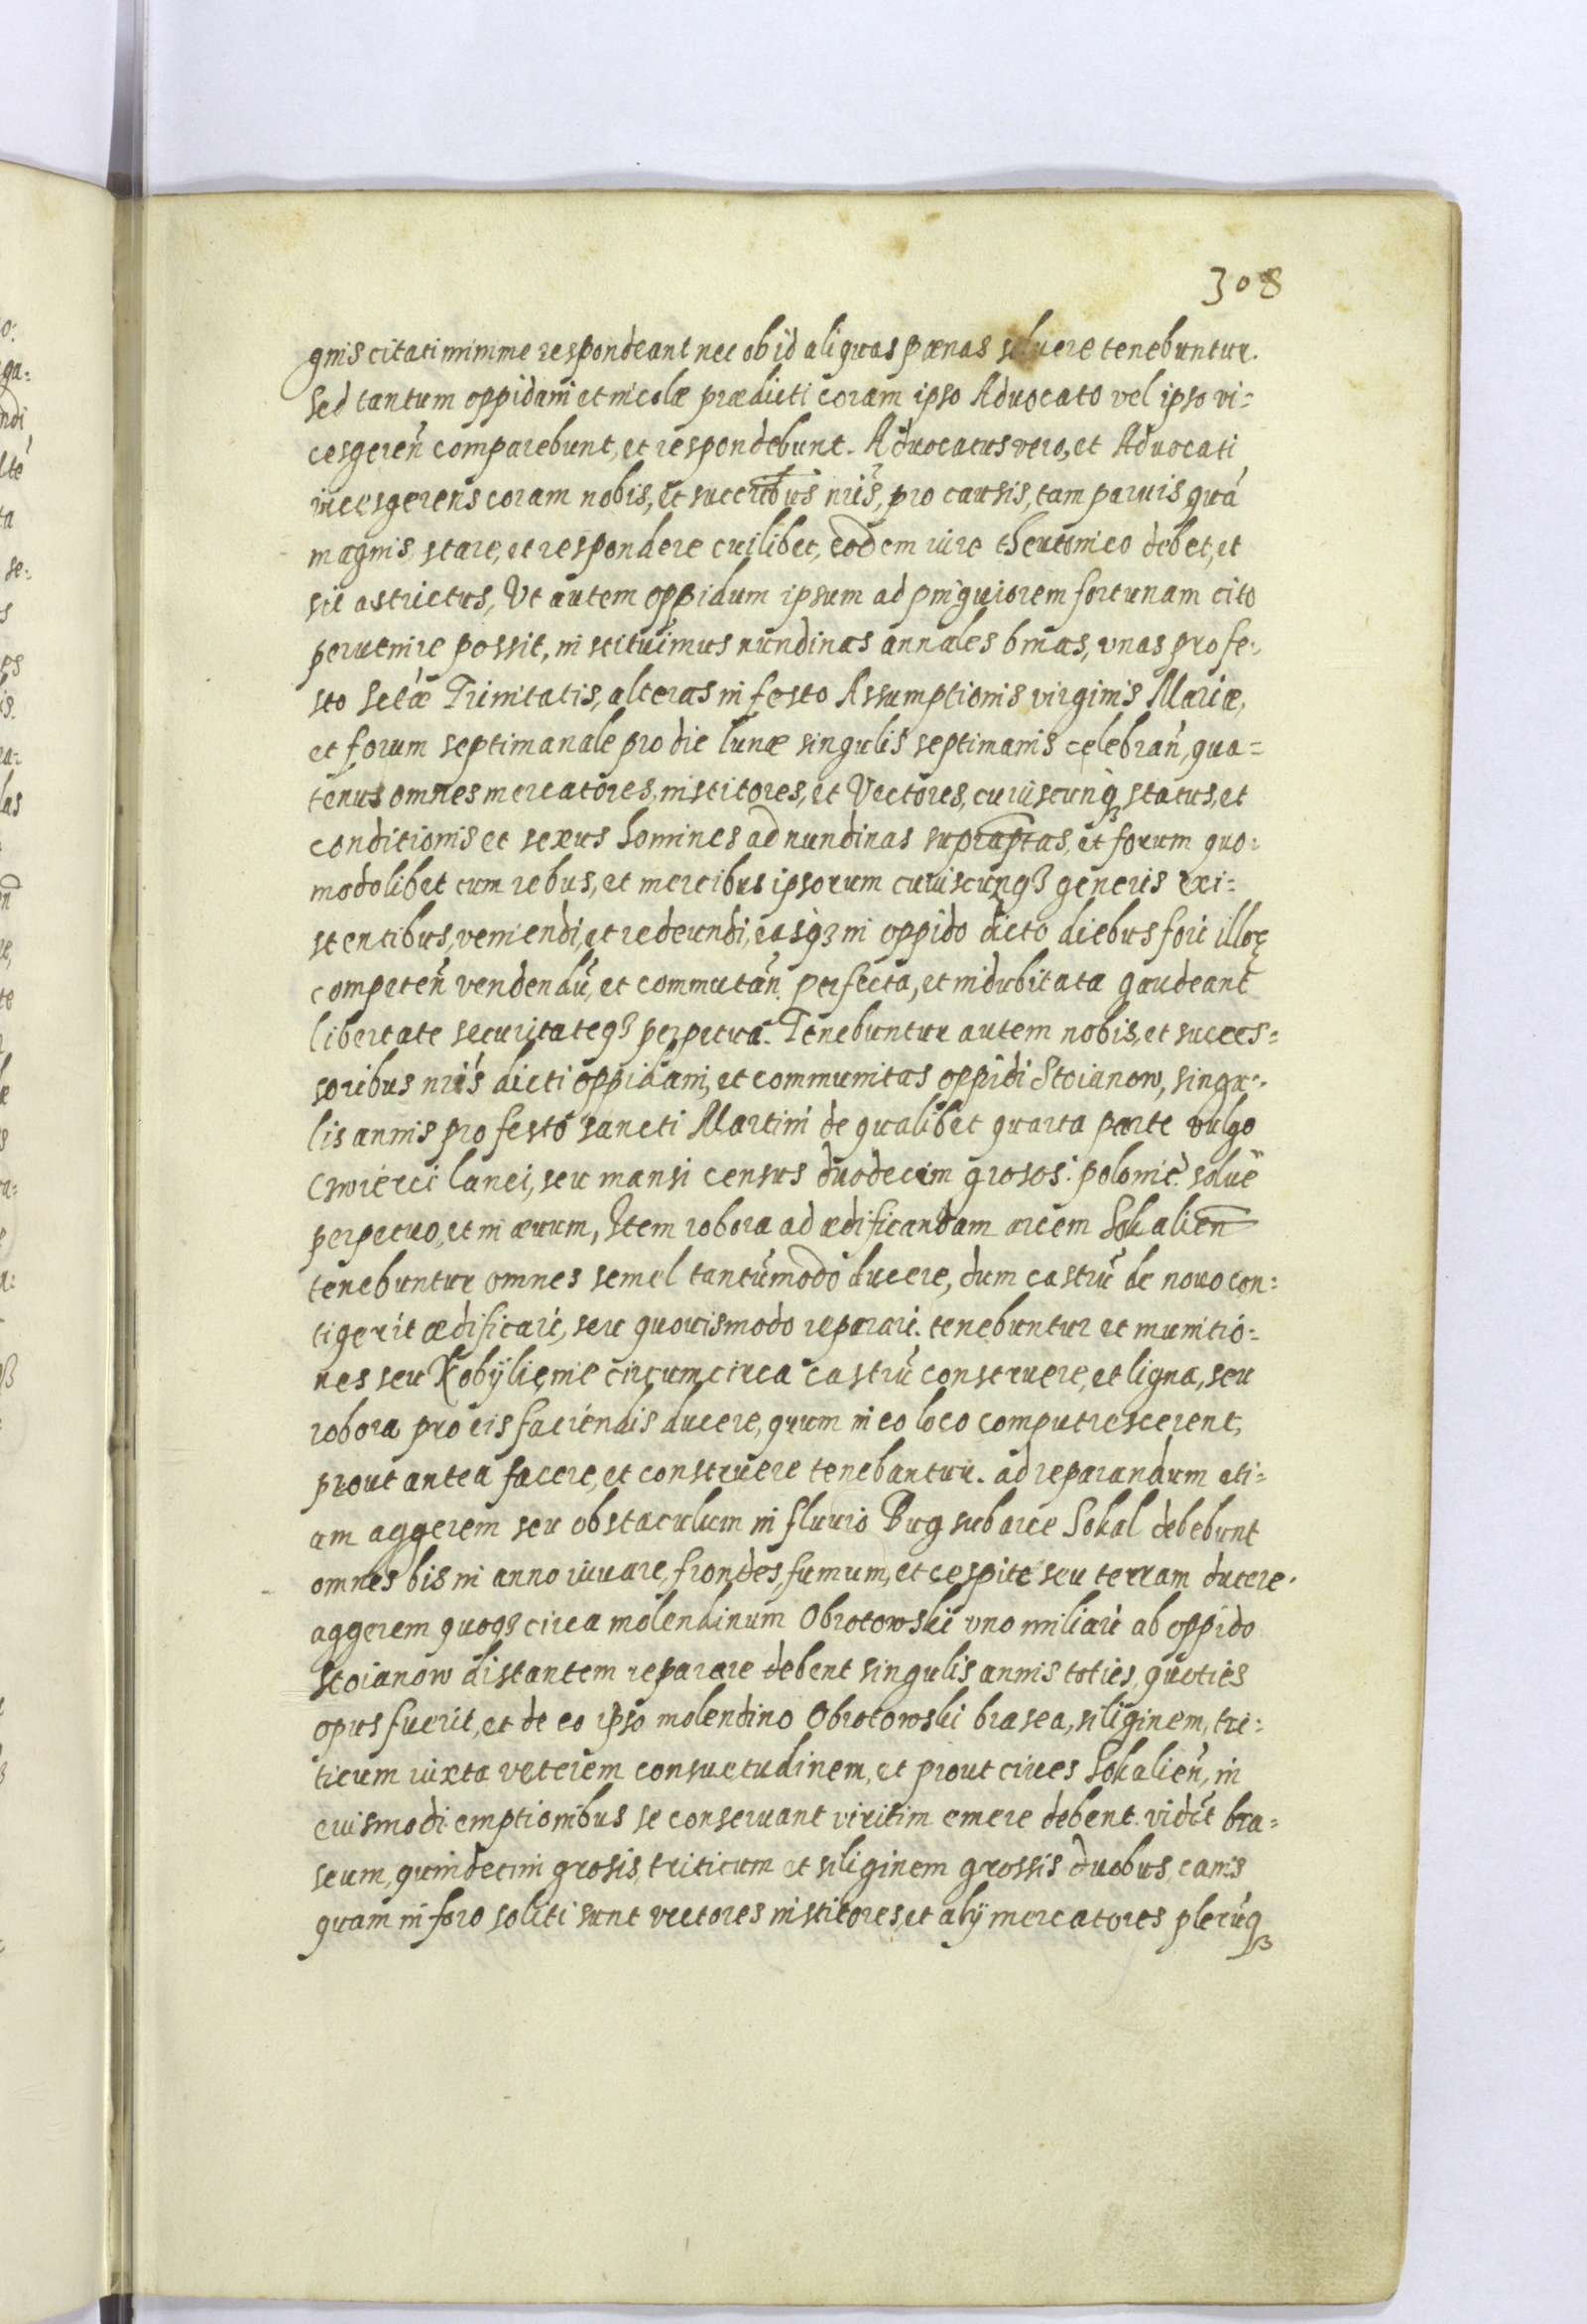 308
gnis citati minime respondeant nec ob id aliquas pœnas soluere tenebuntur.
Sed tantum oppidani et incolæ prædicti coram ipso Aduocato vel ipso vi=
cesgereñ comparebunt, et respondebunt. Aduocatus vero, et Aduocati
vicesgerens coram nobis, et succribus nrīs, pro causis, tam paruis quá
magnis stare, et respondere cuilibet, eodem iure theutonico debet, et
sit astrictus, Ut autem oppidum ipsum ad pinguiorem fortunam cito
peruenire possit, instituimus nundinas annales binas, vnas pro fe=
sto Sctæ Trinitatis, alteras in festo Assumptionis virginis Mariæ,
et forum septimanale pro die lunæ singulis septimanis celebrañ, qua=
tenus omnes mercatores, institores, et Vectores, cuiuscunqꝫ status, et
conditionis et sexus homines ad nundinas supraptas, et forum quo=
modolibet cum rebus, et mercibus ipsorum cuiuscunqꝫ generis exi=
stentibus, veniendi, et redeundi, easqꝫ in oppido dicto diebus fori illoꝝ
competeñ vendendū, et commutañ. perfecta, et indubitata gaudeant
libertate securitateqꝫ perpetua. Tenebuntur autem nobis, et succes=
soribus nrīs dicti oppidani, et communitas oppidi Stoianow, singu=
lis annis pro festo sancti Martini de qualibet quarta parte vulgo
Cwierci lanei, seu mansi census duodecim grosos: polonic̄. soluē
perpetuo, et in æuum, Item robora ad ædificandam arcem Sokalień
tenebuntur omnes semel tantūmodo ducere, dum castrū de nouo con=
tigerit ædificari, seu quouismodo reparari. tenebuntur et munitio=
nes seu Kobÿlięnie circumcirca castrū construere, et ligna, seu
robora pro eis faciendis ducere, quum in eo loco computrescerent,
prout antea facere, et construere tenebantur. ad reparandum eti=
am aggerem seu obstaculum in fluuio Bug sub arce Sokal debebunt
omnes bis in anno iuuare, frondes, fumum, et cespite seu terram ducere.
aggerem quoqꝫ circa molendinum Obrotowski vno miliari ab oppido
Stoianow distantem reparare debent singulis annis toties, quoties
opus fuerit, et de eo ipso molendino Obrotowski brasea, siliginem, tri=
ticum iuxta veterem consuetudinem, et prout ciues Sokalień, in
euismodi emptionibus se conseruant viritim emere debent. vidēt bra=
seum, quindecim grosis, triticum et siliginem grossis duobus, carius
quam in foro soliti sunt vectores institores, et alÿ mercatores plerūqꝫ